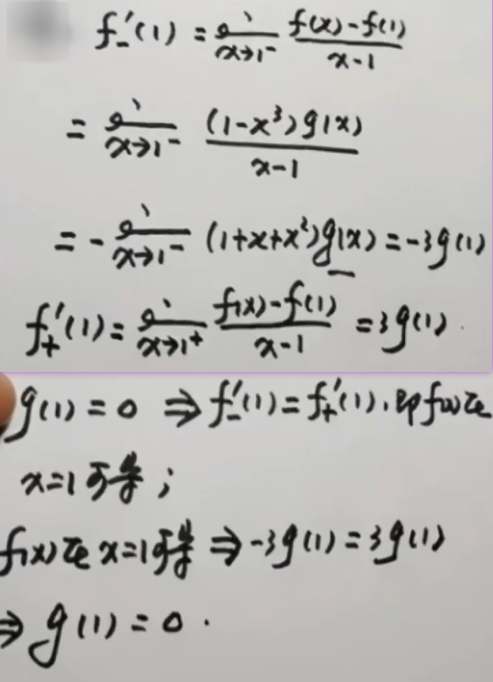 f₋'(1) = lim x→1⁻ (f(x)-f(1))/(x-1)
= lim x→1⁻ ((1-x³)g(x))/(x-1)
= - lim x→1⁻ (1+x+x²)g(x) = -3g(1)
f₊'(1) = lim x→1⁺ (f(x)-f(1))/(x-1) = 3g(1).
g(1) = 0 ⇒ f₋'(1) = f₊'(1), 即f(x)在
x=1可导;
f(x)在x=1可导 ⇒ -3g(1) = 3g(1)
⇒ g(1) = 0.